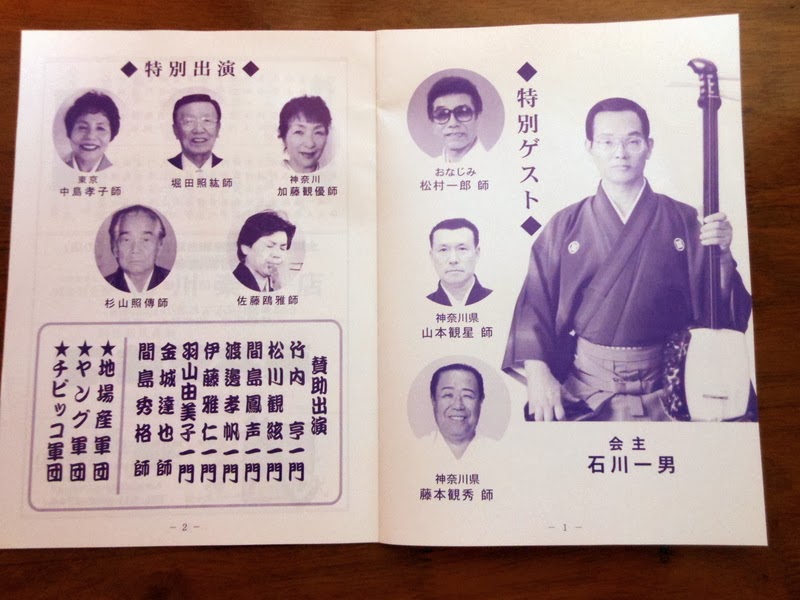 ◆特別ゲスト◆
おなじみ
松村一郎 師
神奈川県
山本観星 師
神奈川県
藤本観秀 師
会主
石川一男
― 1 ―
◆特別出演◆
東京
中島孝子師
堀田照紘師
神奈川
加藤観優師
杉山照傳師
佐藤鴎雅師
賛助出演
竹内亨一門
松川観絃一門
間島鳳声一門
渡邊孝帆一門
伊藤雅仁一門
羽山由美子一門
金城達也師
間島秀格師
★地場産軍団
★ヤング軍団
★チビッコ軍団
― 2 ―